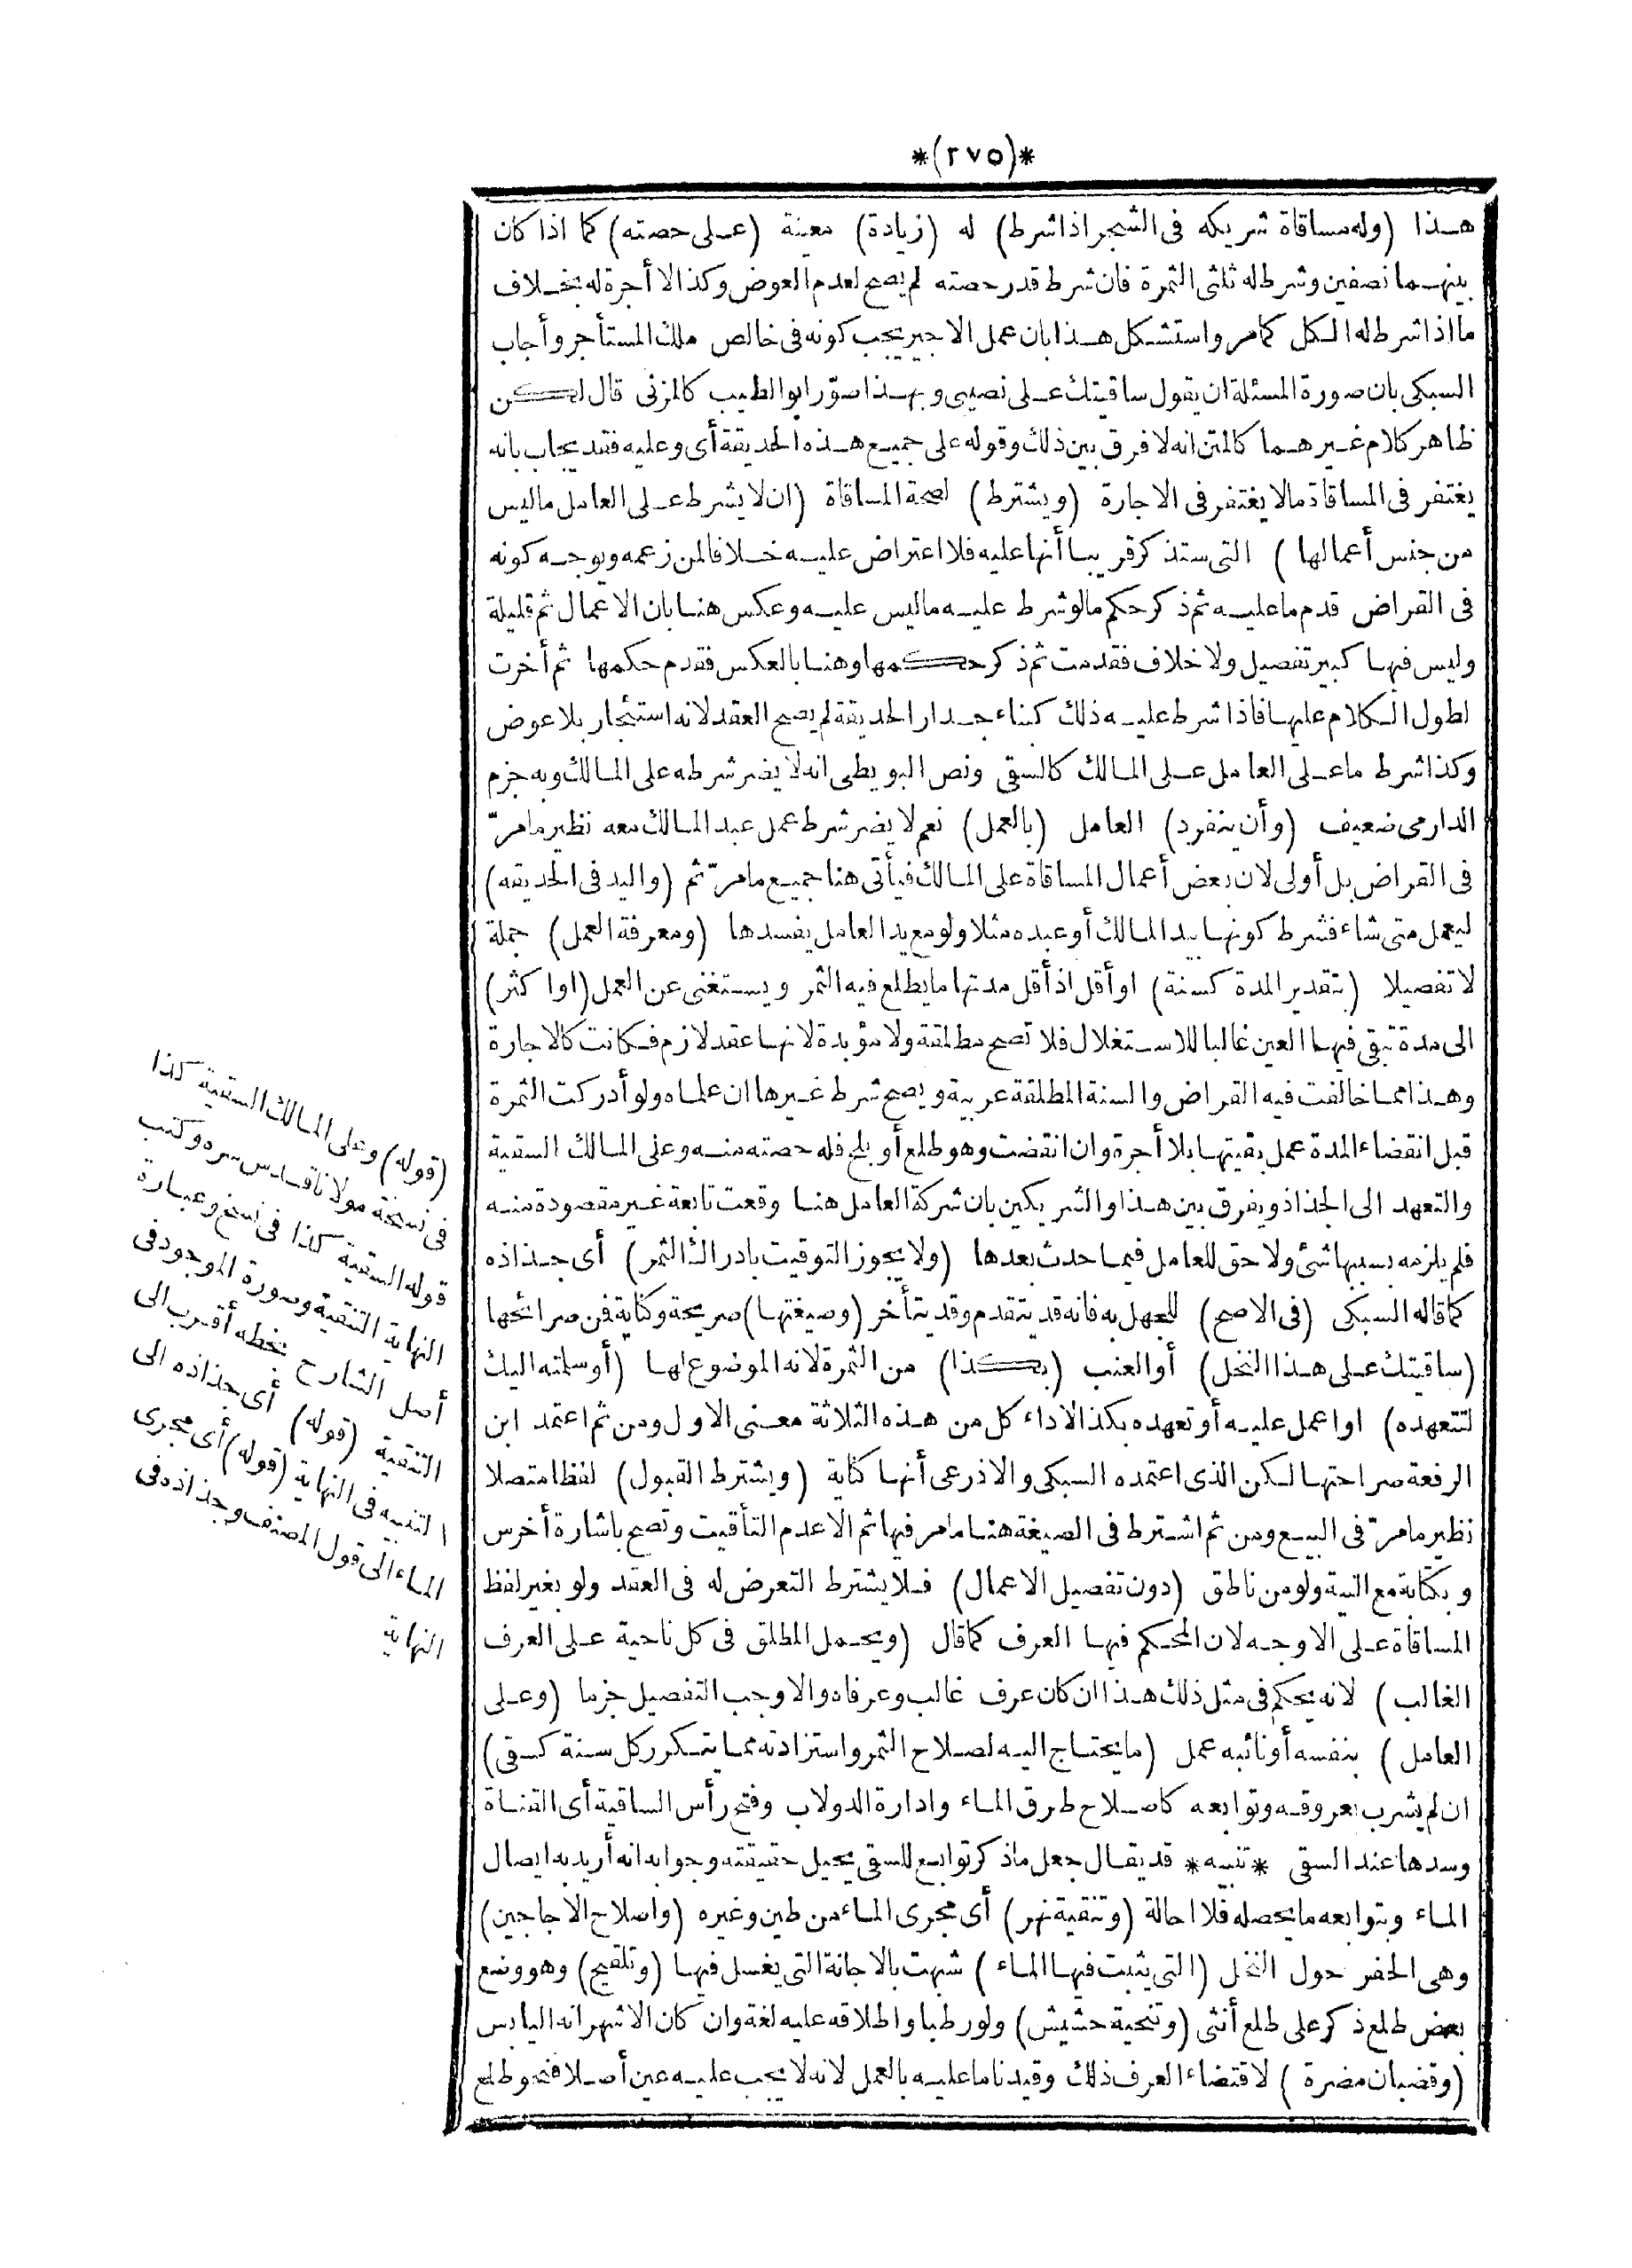 *(٢٧٥)*
هذا (وله مساقاة شريكه فى الشجر اذا شرط) له (زيادة) معينة (على حصته) كما اذا كان
بينهما نصفين وشرط له ثلثى الثمرة فان شرط قدر حصته لم يصح لعدم العوض وكذا لا أجرة له بخلاف
ما اذا شرط له الكل كما مر واستشكل هذا بان عمل الاجير يجب كونه فى خالص ملك المستأجر وأجاب
السبكى بان صورة المسئلة ان يقول ساقيتك على نصيبى وبهذا صوّر ابو الطيب كالمزنى قال لكن
ظاهر كلام غيرهما كالمتن انه لا فرق بين ذلك وقوله على جميع هذه الحديقة أى وعليه فقد يجاب بانه
يغتفر فى المساقاة ما لا يغتفر فى الاجارة (ويشترط) لصحة المساقاة (ان لا يشرط على العامل ما ليس
من جنس أعمالها) التى ستذكر قريبا أنها عليه فلا اعتراض عليه خلافا لمن زعمه ويوجه كونه
فى القراض قدم ما عليه ثم ذكر حكم ما لو شرط عليه ما ليس عليه وعكس هنا بان الاعمال ثم قليلة
وليس فيها كبير تفصيل ولا خلاف فقدمت ثم ذكر حكمها وهنا بالعكس فقدم حكمها ثم أخرت
لطول الكلام عليها فاذا شرط عليه ذلك كبناء جدار الحديقة لم يصح العقد لانه استئجار بلا عوض
وكذا شرط ما على العامل على المالك كالسقى ونص البويطى انه لا يضر شرطه على المالك وبه جزم
الدارمى ضعيف (وأن ينفرد) العامل (بالعمل) نعم لا يضر شرط عمل عبد المالك معه نظير ما مرّ
فى القراض بل أولى لان بعض أعمال المساقاة على المالك فيأتى هنا جميع ما مرّ ثم (واليد فى الحديقه)
ليعمل متى شاء فشرط كونها بيد المالك أو عبده مثلا ولو مع يد العامل يفسدها (ومعرفة العمل) جملة
لا تفصيلا (بتقدير المدة كسنة) او أقل اذ أقل مدتها ما يطلع فيه الثمر ويستغنى عن العمل (او اكثر)
الى مدة تبقى فيها العين غالبا للاستغلال فلا تصح مطلقة ولا مؤبدة لانها عقد لازم فكانت كالاجارة
وهذا مما خالفت فيه القراض والسنة المطلقة عربية ويصح شرط غيرها ان علماه ولو أدركت الثمرة
قبل انقضاء المدة عمل بقيتها بلا أجرة وان انقضت وهو طلع أو بلح فله حصته منه وعلى المالك السقية
والتعهد الى الجذاذ ويفرق بين هذا والشريكين بان شركة العامل هنا وقعت تابعة غير مقصودة منه
فلم يلزمه بسببها شئ ولا حق للعامل فيما حدث بعدها (ولا يجوز التوقيت بادراك الثمر) أى جذاذه
كما قاله السبكى (فى الاصح) للجهل به فانه قد يتقدم وقد يتأخر (وصيغتها) صريحة وكناية فمن صرائحها
(ساقيتك على هذا النخل) أو العنب (بكذا) من الثمرة لانه الموضوع لها (أو سلمته اليك
لتتعهده) او اعمل عليه أو تعهده بكذا لاداء كل من هذه الثلاثة معنى الاول ومن ثم اعتمد ابن
الرفعة صراحتها لكن الذى اعتمده السبكى والاذرعى أنها كناية (ويشترط القبول) لفظا متصلا
نظير ما مرّ فى البيع ومن ثم اشترط فى الصيغة هنا ما مر فيها ثم الا عدم التأقيت وتصح باشارة أخرس
وبكتابة مع النية ولو من ناطق (دون تفصيل الاعمال) فلا يشترط التعرض له فى العقد ولو بغير لفظ
المساقاة على الاوجه لان المحكم فيها العرف كما قال (ويحمل المطلق فى كل ناحية على العرف
الغالب) لانه يحكم فى مثل ذلك هذا ان كان عرف غالب وعرفاه والا وجب التفصيل جزما (وعلى
العامل) بنفسه أو نائبه عمل (ما يحتاج اليه لصلاح الثمر واستزادته مما يتكرر كل سنة كسقى)
ان لم يشرب بعروقه وتوابعه كاصلاح طرق الماء وادارة الدولاب وفتح رأس الساقية أى القناة
وسدها عند السقى *تنبيه* قد يقال جعل ما ذكر توابع للسقى يحيل حقيقته وجوابه انه أريد به ايصال
الماء وبتوابعه ما يحصله فلا احالة (وتنقية نهر) أى مجرى الماء من طين وغيره (واصلاح الاجاجين)
وهى الحفر حول النخل (التى يثبت فيها الماء) شبهت بالاجانة التى يغسل فيها (وتلقيح) وهو وضع
بعض طلع ذكر على طلع أنثى (وتنحية حشيش) ولو رطبا واطلاقه عليه لغة وان كان الاشهر انه اليابس
(وقضبان مضرة) لاقتضاء العرف ذلك وقيدنا ما عليه بالعمل لانه لا يجب عليه عين أصلا فنحو طلع
(قوله) وعلى المالك السقية كذا
فى نسخة مولانا قدس سره وكتب
قوله السقية كذا فى نسخ وعبارة
النهاية التنقية وصورة الموجود فى
أصل الشارح بخطه أقرب الى
التنقية (قوله) أى جذاذه الى
التنبيه فى النهاية (قوله) أى مجرى
الماء الى قول المصنف وجذاذه فى
النهاية